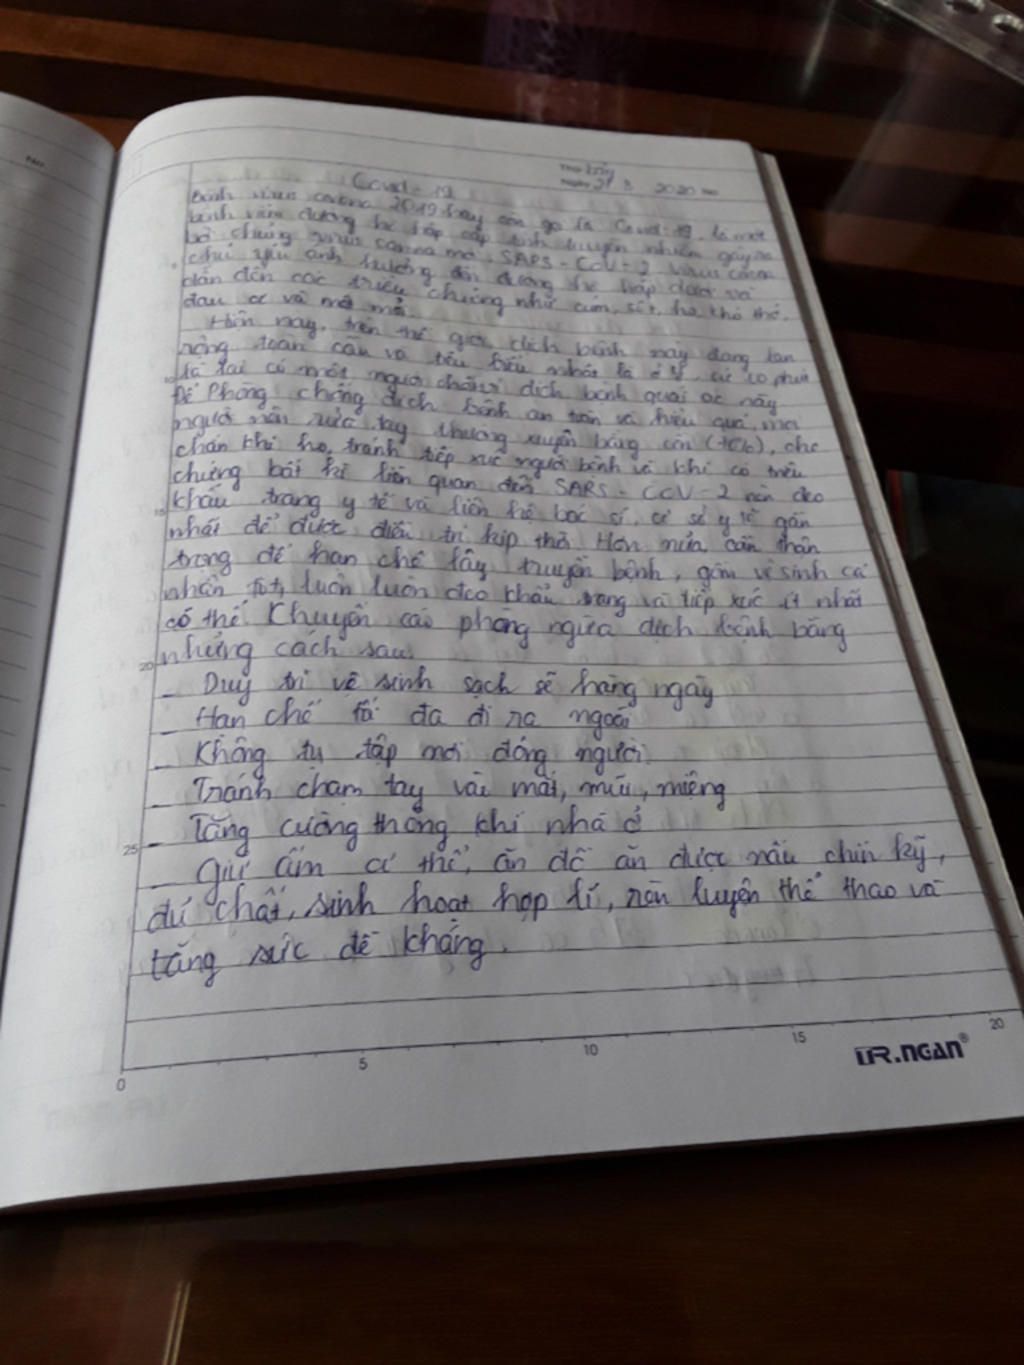 No
Thứ bảy
Ngày 21 3 2020 No
Covid-19
Bệnh virus corona 2019 hay còn gọi là Covid-19 là một
bệnh viêm đường hô hấp cấp tính truyền nhiễm gây ra
bởi chủng virus corona mới SARS-CoV-2 virus corona
chủ yếu ảnh hưởng đến đường hô hấp dưới và
dẫn đến các triệu chứng như cúm, sốt, ho, khó thở,
đau cơ và mệt mỏi
Hiện nay, trên thế giới dịch bệnh này đang lan
rộng toàn cầu và tiêu biểu nhất là ở Ý, cứ 10 phút
10 lại có một người chết vì dịch bệnh quái ác này
Để Phòng chống dịch bệnh an toàn và hiệu quả, mọi
người nên rửa tay thường xuyên bằng cồn, che
chắn khi ho, tránh tiếp xúc người bệnh và khi có triệu
chứng bất kì liên quan đến SARS-CoV-2 nên đeo
15 khẩu trang y tế và liên hệ bác sĩ, cơ sở y tế gần
nhất để được điều trị kịp thời Hơn nữa, cẩn thận
trong để hạn chế lây truyền bệnh, gồm vệ sinh cá
nhân tốt, luôn luôn đeo khẩu trang và tiếp xúc ít nhất
có thể Khuyến cáo phòng ngừa dịch bệnh bằng
20 những cách sau:
- Duy trì vệ sinh sạch sẽ hàng ngày
- Hạn chế tối đa đi ra ngoài
- Không tụ tập nơi đông người
- Tránh chạm tay vào mắt, mũi, miệng
25 - Tăng cường thông khí nhà ở
- Giữ ấm cơ thể, ăn đồ ăn được nấu chín kỹ,
đủ chất, sinh hoạt hợp lí, rèn luyện thể thao và
tăng sức đề kháng.
0 5 10 15 20
TR.NGAN®